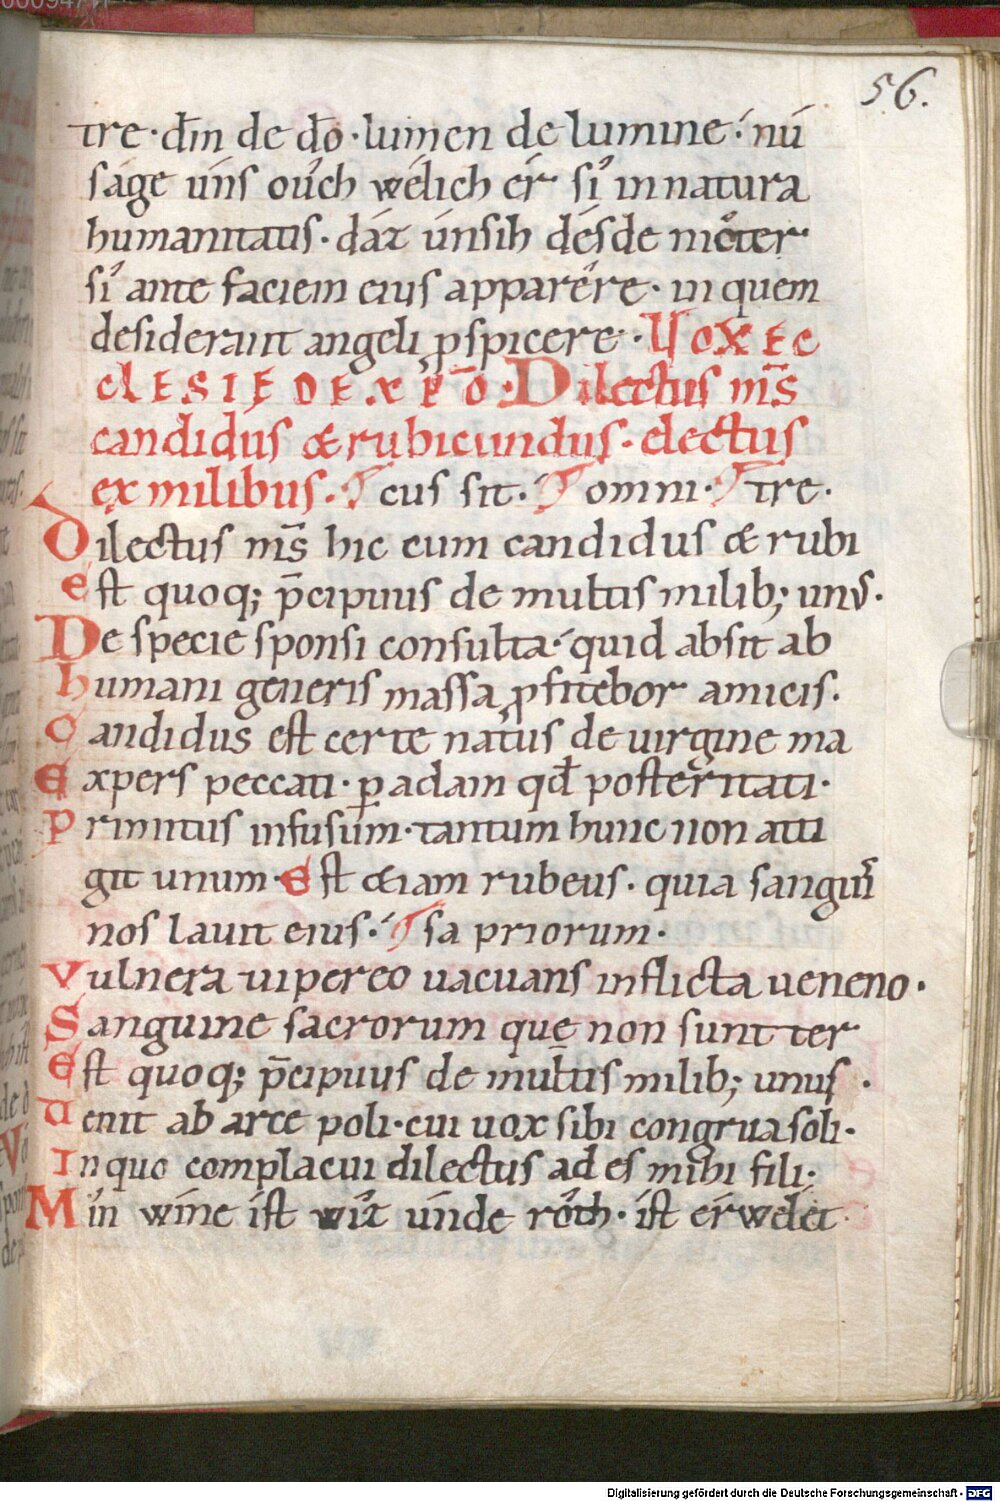 56.
tre· dm̄ de do̅· lumen de lumine· nú
ságe úns oúch wélich ér sí in natura
humanitatis· dáz únsih dés de mŏter
sí ante faciem eius apparére· in quem
desiderant angeli ꝓspicere· VOX EC
CLESIE DE XP̅O· Dilectus ms̅
candidus & rubicundus· electus
ex milibus· cus sit· omni· tre·
Dilectus ms̅ hic cum candidus & rubi
Est quoq; p̄cipuus de multis milib; unus·
De specie sponsi consulta· quid absit ab
humani generis massa ꝓfitebor amicis·
Candidus est certe natus de uirgine ma
Expers peccati· ꝑ adam qđ posteritati·
Primitus infusum· tantum hunc non atti
git unum· Est &iam rubeus· quia sangui
nos lauit eius· sa priorum·
Vulnera uipereo uacuans inflicta ueneno·
Sanguine sacrorum quę non sunt ter
Est quoq; p̄cipuus de multis milib; unus·
Venit ab arce poli· cui uox sibi congrua soli·
In quo complacui dilectus ades mihi fili;
Mín wíne íst wíz únde rốth· íst érwelét
Digitalisierung gefördert durch die Deutsche Forschungsgemeinschaft - DFG